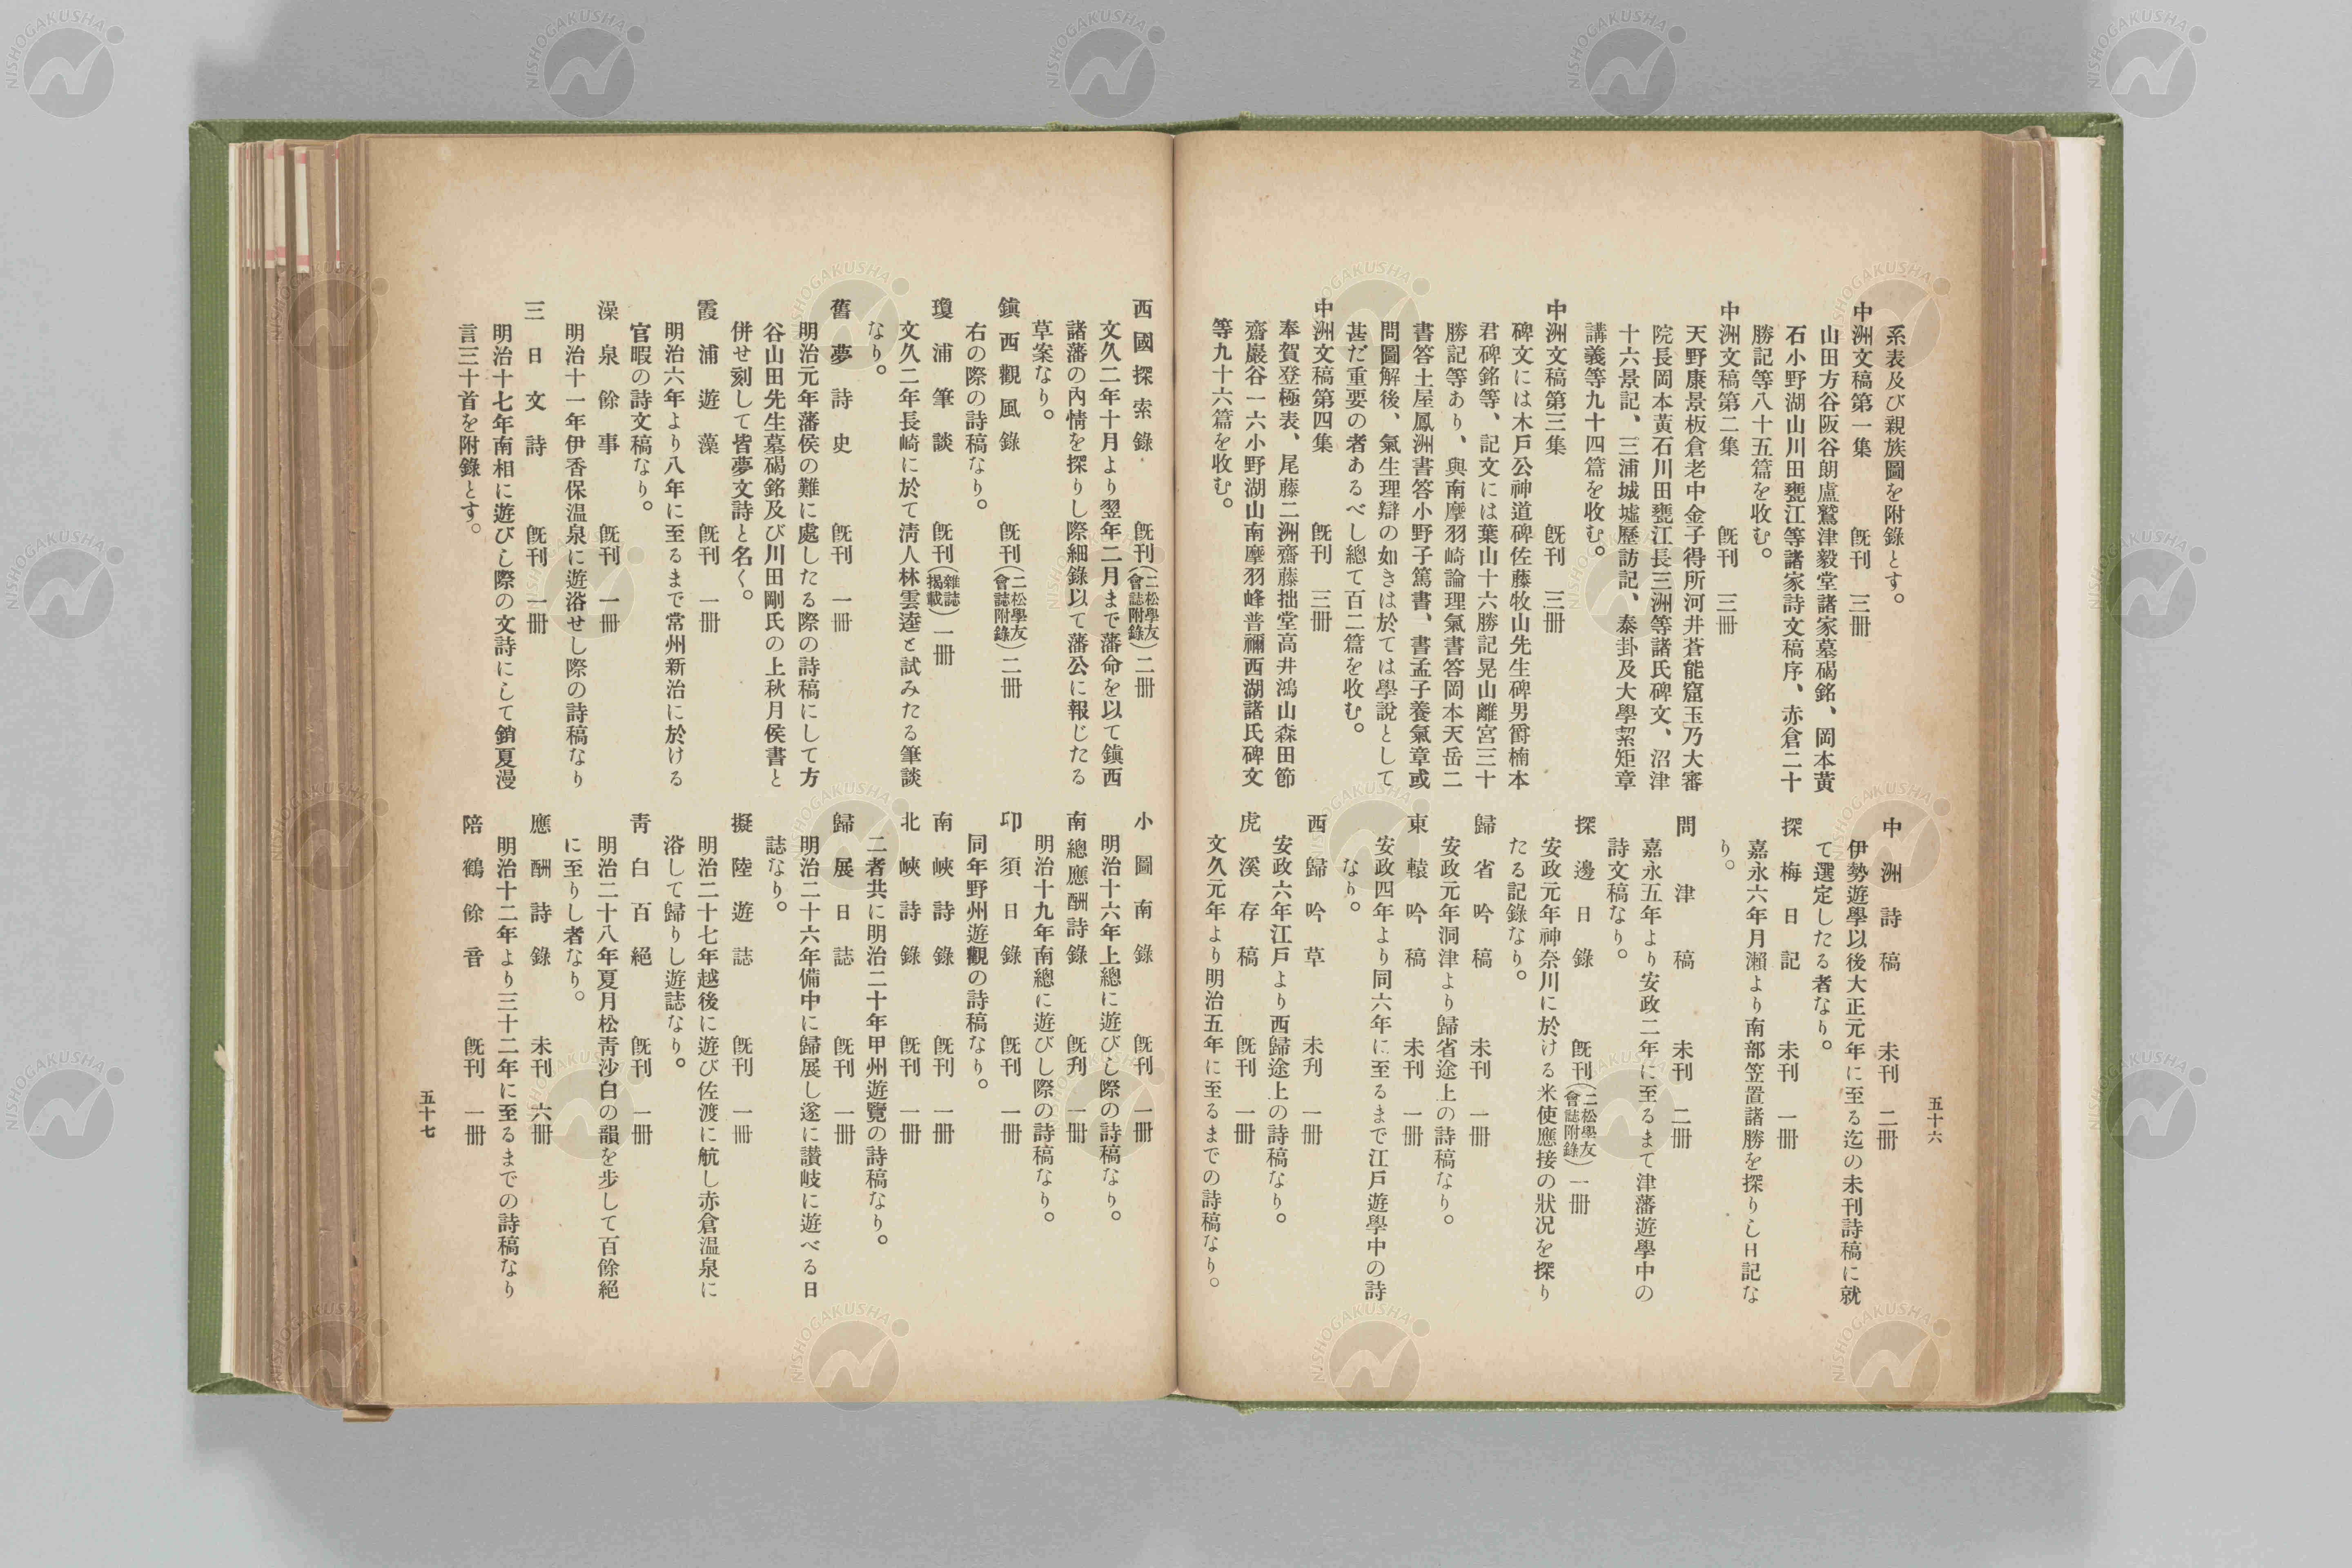 系表及び親族圖を附錄とす。
中洲文稿第一集　既刊　三冊
山田方谷阪谷朗盧鷲津毅堂諸家墓碣銘、岡本黃
石小野湖山川田甕江等諸家詩文稿序、赤倉二十
勝記等八十五篇を收む。
中洲文稿第二集　既刊　三冊
天野康景板倉老中金子得所河井蒼龍窟玉乃大審
院長岡本黃石川田甕江長三洲等諸氏碑文、沼津
十六景記、三浦城墟歷訪記、泰卦及大學絜矩章
講義等九十四篇を收む。
中洲文稿第三集　既刊　三冊
碑文には木戶公神道碑佐藤牧山先生碑男爵楠本
君碑銘等、記文には葉山十六勝記晃山離宮三十
勝記等あり、與南摩羽崎論理氣書答岡本天岳二
書答土屋鳳洲書答小野子篤書、書孟子養氣章或
問圖解後、氣生理辯の如きは於ては學說として
甚だ重要の者あるべし總て百二篇を收む。
中洲文稿第四集　既刊　三冊
奉賀登極表、尾藤二洲齋藤拙堂高井鴻山森田節
齋巖谷一六小野湖山南摩羽峰普禰西湖諸氏碑文
等九十六篇を收む。
中洲詩稿　未刊　二冊
伊勢遊學以後大正元年に至る迄の未刊詩稿に就
て選定したる者なり。
探梅日記　未刊　一冊
嘉永六年月瀨より南部笠置諸勝を探りし日記な
り。
問津稿　未刊　二冊
嘉永五年より安政二年に至るまて津藩遊學中の
詩文稿なり。
探邊日錄　既刊（二松學友會誌附錄）一冊
安政元年神奈川に於ける米使應接の狀况を探り
たる記錄なり。
歸省吟稿　未刊　一冊
安政元年洞津より歸省途上の詩稿なり。
東轅吟稿　未刊　一冊
安政四年より同六年に至るまで江戶遊學中の詩
なり。
西歸吟草　未刋　一冊
安政六年江戶より西歸途上の詩稿なり。
虎溪存稿　既刊　一冊
文久元年より明治五年に至るまでの詩稿なり。
五十六
西國探索錄　既刊（二松學友會誌附錄）二冊
文久二年十月より翌年二月まで藩命を以て鎭西
諸藩の內情を探りし際細錄以て藩公に報じたる
草案なり。
鎭西觀風錄　既刊（二松學友會誌附錄）二冊
右の際の詩稿なり。
瓊浦筆談　既刊（雜誌揭載）一冊
文久二年長崎に於て淸人林雲逵と試みたる筆談
なり。
舊夢詩史　既刊　一冊
明治元年藩侯の難に處したる際の詩稿にして方
谷山田先生墓碣銘及び川田剛氏の上秋月侯書と
併せ刻して皆夢文詩と名く。
霞浦遊藻　既刊　一冊
明治六年より八年に至るまで常州新治に於ける
官暇の詩文稿なり。
澡泉餘事　既刊　一冊
明治十一年伊香保温泉に遊浴せし際の詩稿なり
三日文詩　既刊　一冊
明治十七年南相に遊びし際の文詩にして銷夏漫
言三十首を附錄とす。
小圖南錄　既刊　一冊
明治十六年上總に遊びし際の詩稿なり。
南總應酬詩錄　既刋　一冊
明治十九年南總に遊びし際の詩稿なり。
卬須日錄　既刊　一冊
同年野州遊觀の詩稿なり。
南峽詩錄　既刊　一冊
北峽詩錄　既刊　一冊
二者共に明治二十年甲州遊覽の詩稿なり。
歸展日誌　既刊　一冊
明治二十六年備中に歸展し遂に讃岐に遊べる日
誌なり。
擬陸遊誌　既刊　一冊
明治二十七年越後に遊び佐渡に航し赤倉温泉に
浴して歸りし遊誌なり。
靑白百絕　既刊　一冊
明治二十八年夏月松靑沙白の韻を步して百餘絕
に至りし者なり。
應酬詩錄　未刊　六冊
明治十二年より三十二年に至るまでの詩稿なり
陪鶴餘音　既刊　一冊
五十七